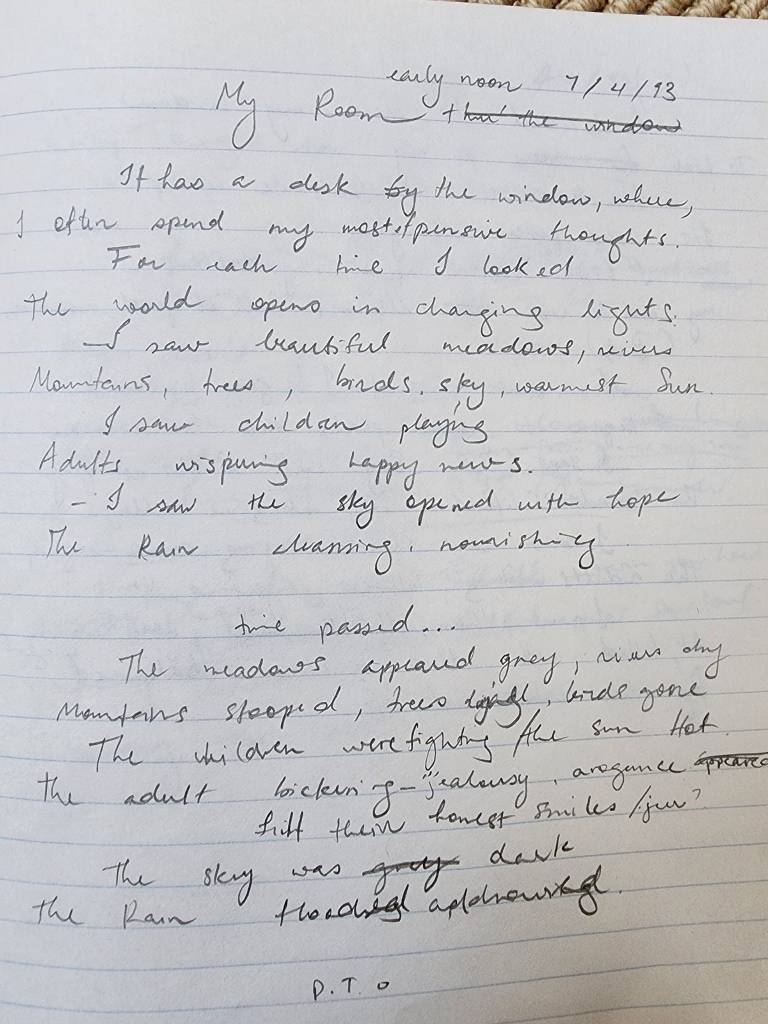 early noon 7/4/93
My Room thru' the window
It has a desk by the window, where,
I often spend my most pensive thoughts.
For each time I looked
the world opens in changing lights.
- I saw beautiful meadows, rivers
Mountains, trees, birds, sky, warmest Sun.
I saw children playing
Adults wispering happy news.
- I saw the sky opened with hope
The Rain cleansing, nourishing
time passed...
The meadows appeared grey, rivers dry
Mountains stooped, trees, birds gone
The children were fighting / the sun Hot.
the adult bickering - jealousy, arogance appeared
their honest smiles /
The sky was grey dark
the Rain
P.T.O